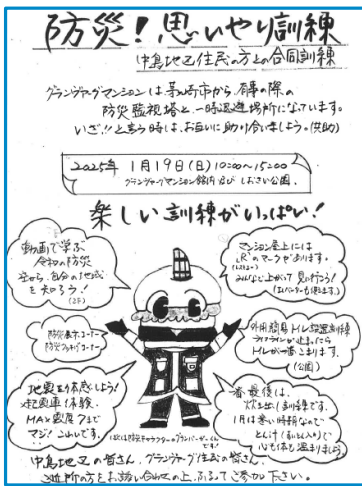 防災！思いやり訓練
中島地区住民の方との合同訓練
グランヴァーグマンションは茅ヶ崎市から、有事の際の
防災監視塔と、一時退避場所になっています。
いざ!!と言う時は、お互いに助け合いましょう。(共助)
2025年 1月19日(日)10:00〜15:00
グランヴァーグマンション館内及びしおさい公園。
楽しい訓練がいっぱい！
動画で学ぶ
令和の防災
自分の地域
を知ろう！
(2F)
マンション屋上には
"R"のマークがあります。
みんなで上がって見に行こう！
(エレベーターも使えます。)
防災展示コーナー
外用簡易トイレ設置訓練
ライフラインが止まったら
トイレが一番こまります。
(公園)
地震を体感しよう！
起震車体験。
MAX震度7まで
マジ！こわいです。
一番最後は、
炊き出し訓練です。
1月は寒い時期なので
とん汁
心も体も温まりましょう
中島地区の皆さん、グランヴァーグ住民の皆さん、
ご近所の方をお誘い合わせの上、ふるってご参加下さい。